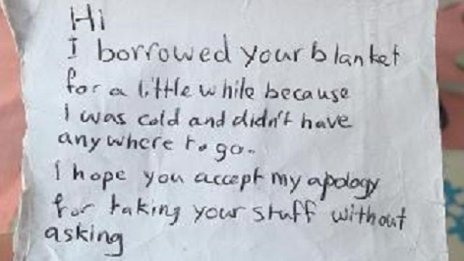 Hi
I borrowed your blanket
for a little while because
I was cold and didn't have
anywhere to go.
I hope you accept my apology
for taking your stuff without
asking